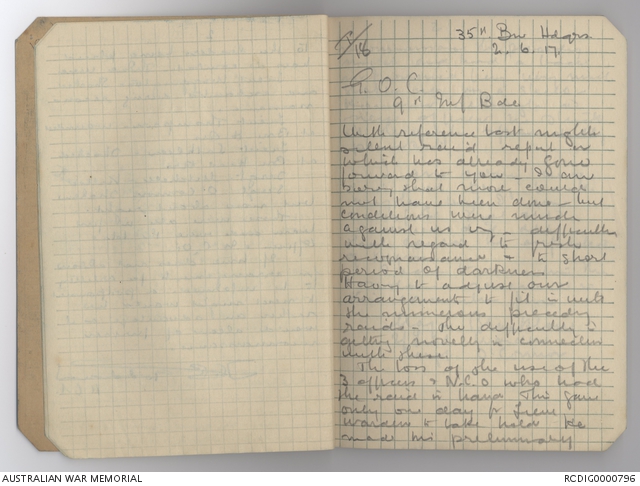 35th Bn Hdqrs
18
2.6.17
G.O.C.
9th Inf Bde
With reference last night's
silent raid report on
which has already gone
forward to you - I am
sorry that more could
not have been done - but
conditions were much
against us viz - difficulties
with regard to fresh
reconnaissance - to short
period of darkness
Having to adjust our
arrangements to fit in with
the numerous preceding
raids - The difficulty in
getting novelty in connection
with these.
The loss of the use of the
3 officers & N.C.O who had
the raid in hand This gave
only one day for Lieut
to take hold He
made his preliminary
AUSTRALIAN WAR MEMORIAL
RCDIG0000796